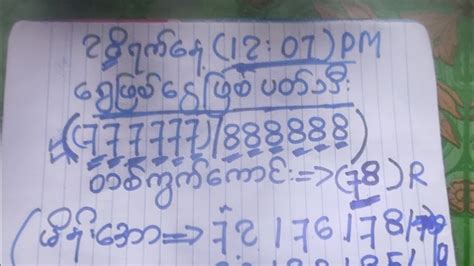 ၁၆ရက်နေ့ (12:01) PM
ရွှေဖြစ်ငွေဖြစ် ပတ်သီး
(777777)/888888)
တစ်ကွက်ကောင်း=>(78)R
(ဖိန်းအော=> 72 176 178 1